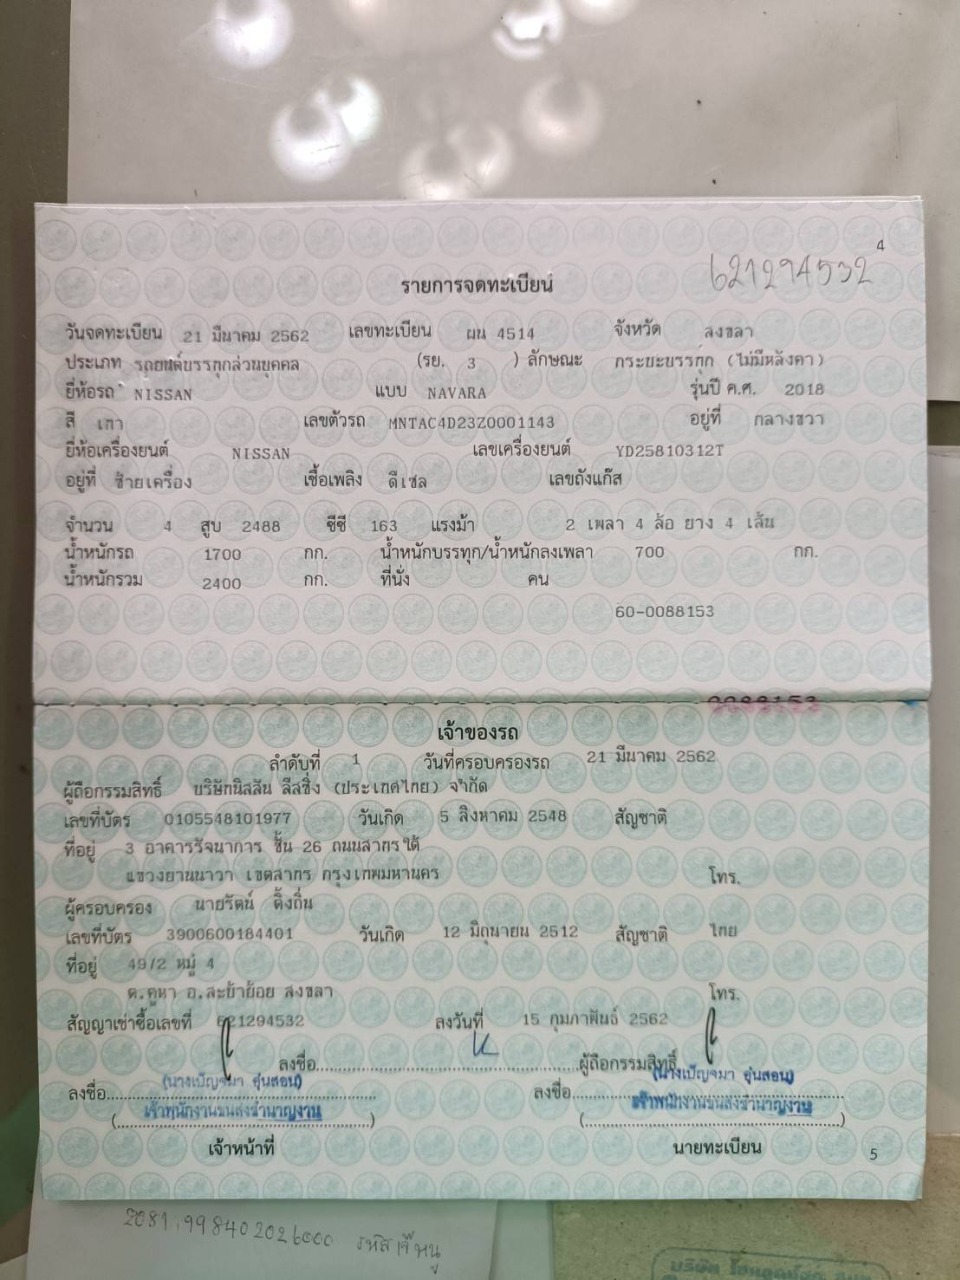 4
621294532
รายการจดทะเบียน
วันจดทะเบียน 21 มีนาคม 2562 เลขทะเบียน ผน 4514 จังหวัด สงขลา
ประเภท รถยนต์บรรทุกส่วนบุคคล (รย. 3 ) ลักษณะ กระบะบรรทุก (ไม่มีหลังคา)
ยี่ห้อรถ NISSAN แบบ NAVARA รุ่นปี ค.ศ. 2018
สี เทา เลขตัวรถ MNTAC4D23Z0001143 อยู่ที่ กลางขวา
ยี่ห้อเครื่องยนต์ NISSAN เลขเครื่องยนต์ YD25810312T
อยู่ที่ ซ้ายเครื่อง เชื้อเพลิง ดีเซล เลขถังแก๊ส
จำนวน 4 สูบ 2488 ซีซี 163 แรงม้า 2 เพลา 4 ล้อ ยาง 4 เส้น
น้ำหนักรถ 1700 กก. น้ำหนักบรรทุก/น้ำหนักลงเพลา 700 กก.
น้ำหนักรวม 2400 กก. ที่นั่ง คน
60-0088153
0088153
เจ้าของรถ
ลำดับที่ 1 วันที่ครอบครองรถ 21 มีนาคม 2562
ผู้ถือกรรมสิทธิ์ บริษัทนิสสัน ลีสซิ่ง (ประเทศไทย) จำกัด
เลขที่บัตร 0105548101977 วันเกิด 5 สิงหาคม 2548 สัญชาติ
ที่อยู่ 3 อาคารรัจนาการ ชั้น 26 ถนนสาทรใต้
แขวงยานนาวา เขตสาทร กรุงเทพมหานคร โทร.
ผู้ครอบครอง นายรัตน์ ดิ้งถิ่น
เลขที่บัตร 3900600184401 วันเกิด 12 มิถุนายน 2512 สัญชาติ ไทย
ที่อยู่ 49/2 หมู่ 4
ต.คูหา อ.สะบ้าย้อย สงขลา โทร.
สัญญาเช่าซื้อเลขที่ 621294532 ลงวันที่ 15 กุมภาพันธ์ 2562
ลงชื่อ ผู้ถือกรรมสิทธิ์
(นางเบ็ญจมา อุ่นสอน) (นางเบ็ญจมา อุ่นสอน)
ลงชื่อ ลงชื่อ
เจ้าพนักงานขนส่งชำนาญงาน เจ้าพนักงานขนส่งชำนาญงาน
เจ้าหน้าที่ นายทะเบียน
5
รหัสเจ๊หนู
บริษัท